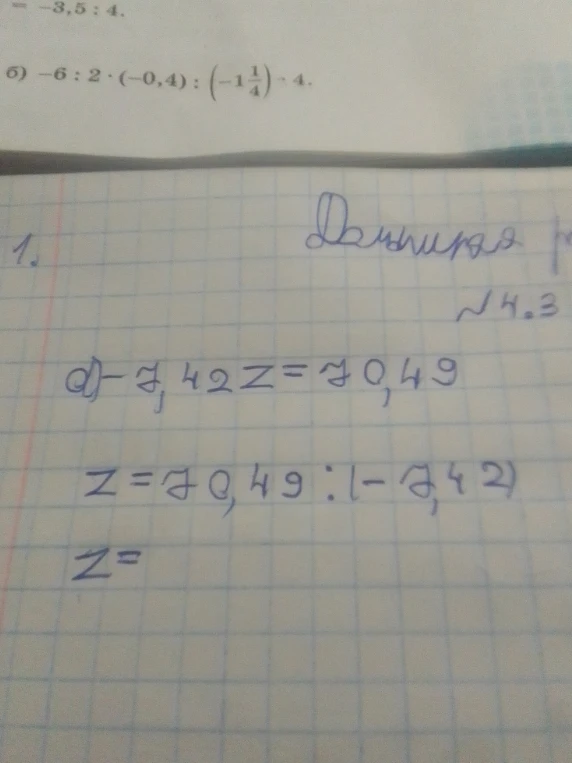 = −3,5 : 4.
б) −6 : 2 · (−0,4) : (−1 1/4) · 4.
1.
Домашняя
№ 4.3
а) −7,42z = 70,49
z = 70,49 : (−7,42)
z =